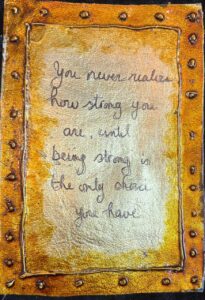 You never realize
how strong you
are, until
being strong is
the only choice
you have